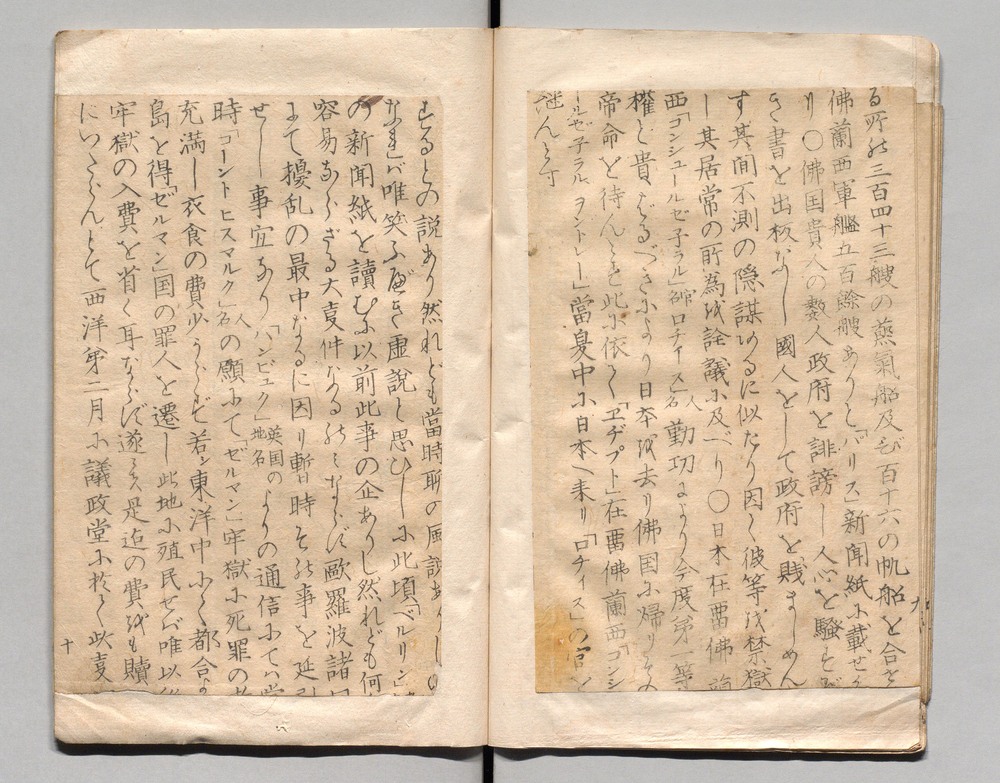 る所の三百四十三艘の蒸氣船及び百十六の帆船を合を
佛蘭西軍艦五百餘艘ありと「パリス」新聞紙に載せ
り〇佛国貴人の數人政府を誹謗し人心を騷を
き書を出板なし國人をして政府を賤ましめん
す其間不測の隠謀あるに似たり因て彼等を禁獄
し其居常の所為を詮議に及べり〇日本在畱佛
西「コンシュールゼ子ラル」官名ロチィス人名勤功により今度第一等
權ど貴
帝命を待んと此に依て「ヱヂプト」在畱佛蘭西「コンシ
ールゼ子ラルヲントレー」當夏中に日本へ来り「ロチィス」の官を
継んとす
するとの説あり然れども當時
なれバ唯笑ふべき虚說と思ひしに此頃「ベルリン」
の新聞紙を讀むに以前此事の企ありし然れども何
容易ならざる大事件なるのミならず歐羅波諸
にて擾乱の最中なるに因り暫時その事を延引
せし事宜あり「ハンビュク」英国の地名よりの通信にてハ
時「コーントヒスマルク」人名の願にて「ゼルマン」牢獄に死罪の
充満し衣食の費少からず若シ東洋中にて都合
島を得「ゼルマン」国の罪人を遷し此地に殖民せバ唯以
牢獄の入費を省く耳ならず遂には是迄の費をも贖
にいたらんとて西洋第二月に議政堂に於て此事
十